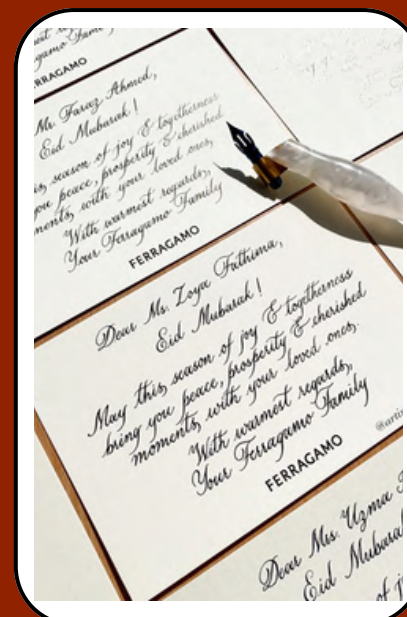 RRAGAMO
Mr. Faraz Ahmed,
Eid Mubarak!
season of joy & togetherness
you peace, prosperity & cherished
moments, with your loved ones,
With warmest regards,
Your Ferragamo Family
FERRAGAMO
Dear Ms. Zoya Fathima,
Eid Mubarak!
May this, season of joy & togetherness
bring you peace, prosperity & cherished
moments, with your loved ones.
With warmest regards,
Your Ferragamo Family
FERRAGAMO
Dear Mrs. Uzma
Eid Mubarak
of j